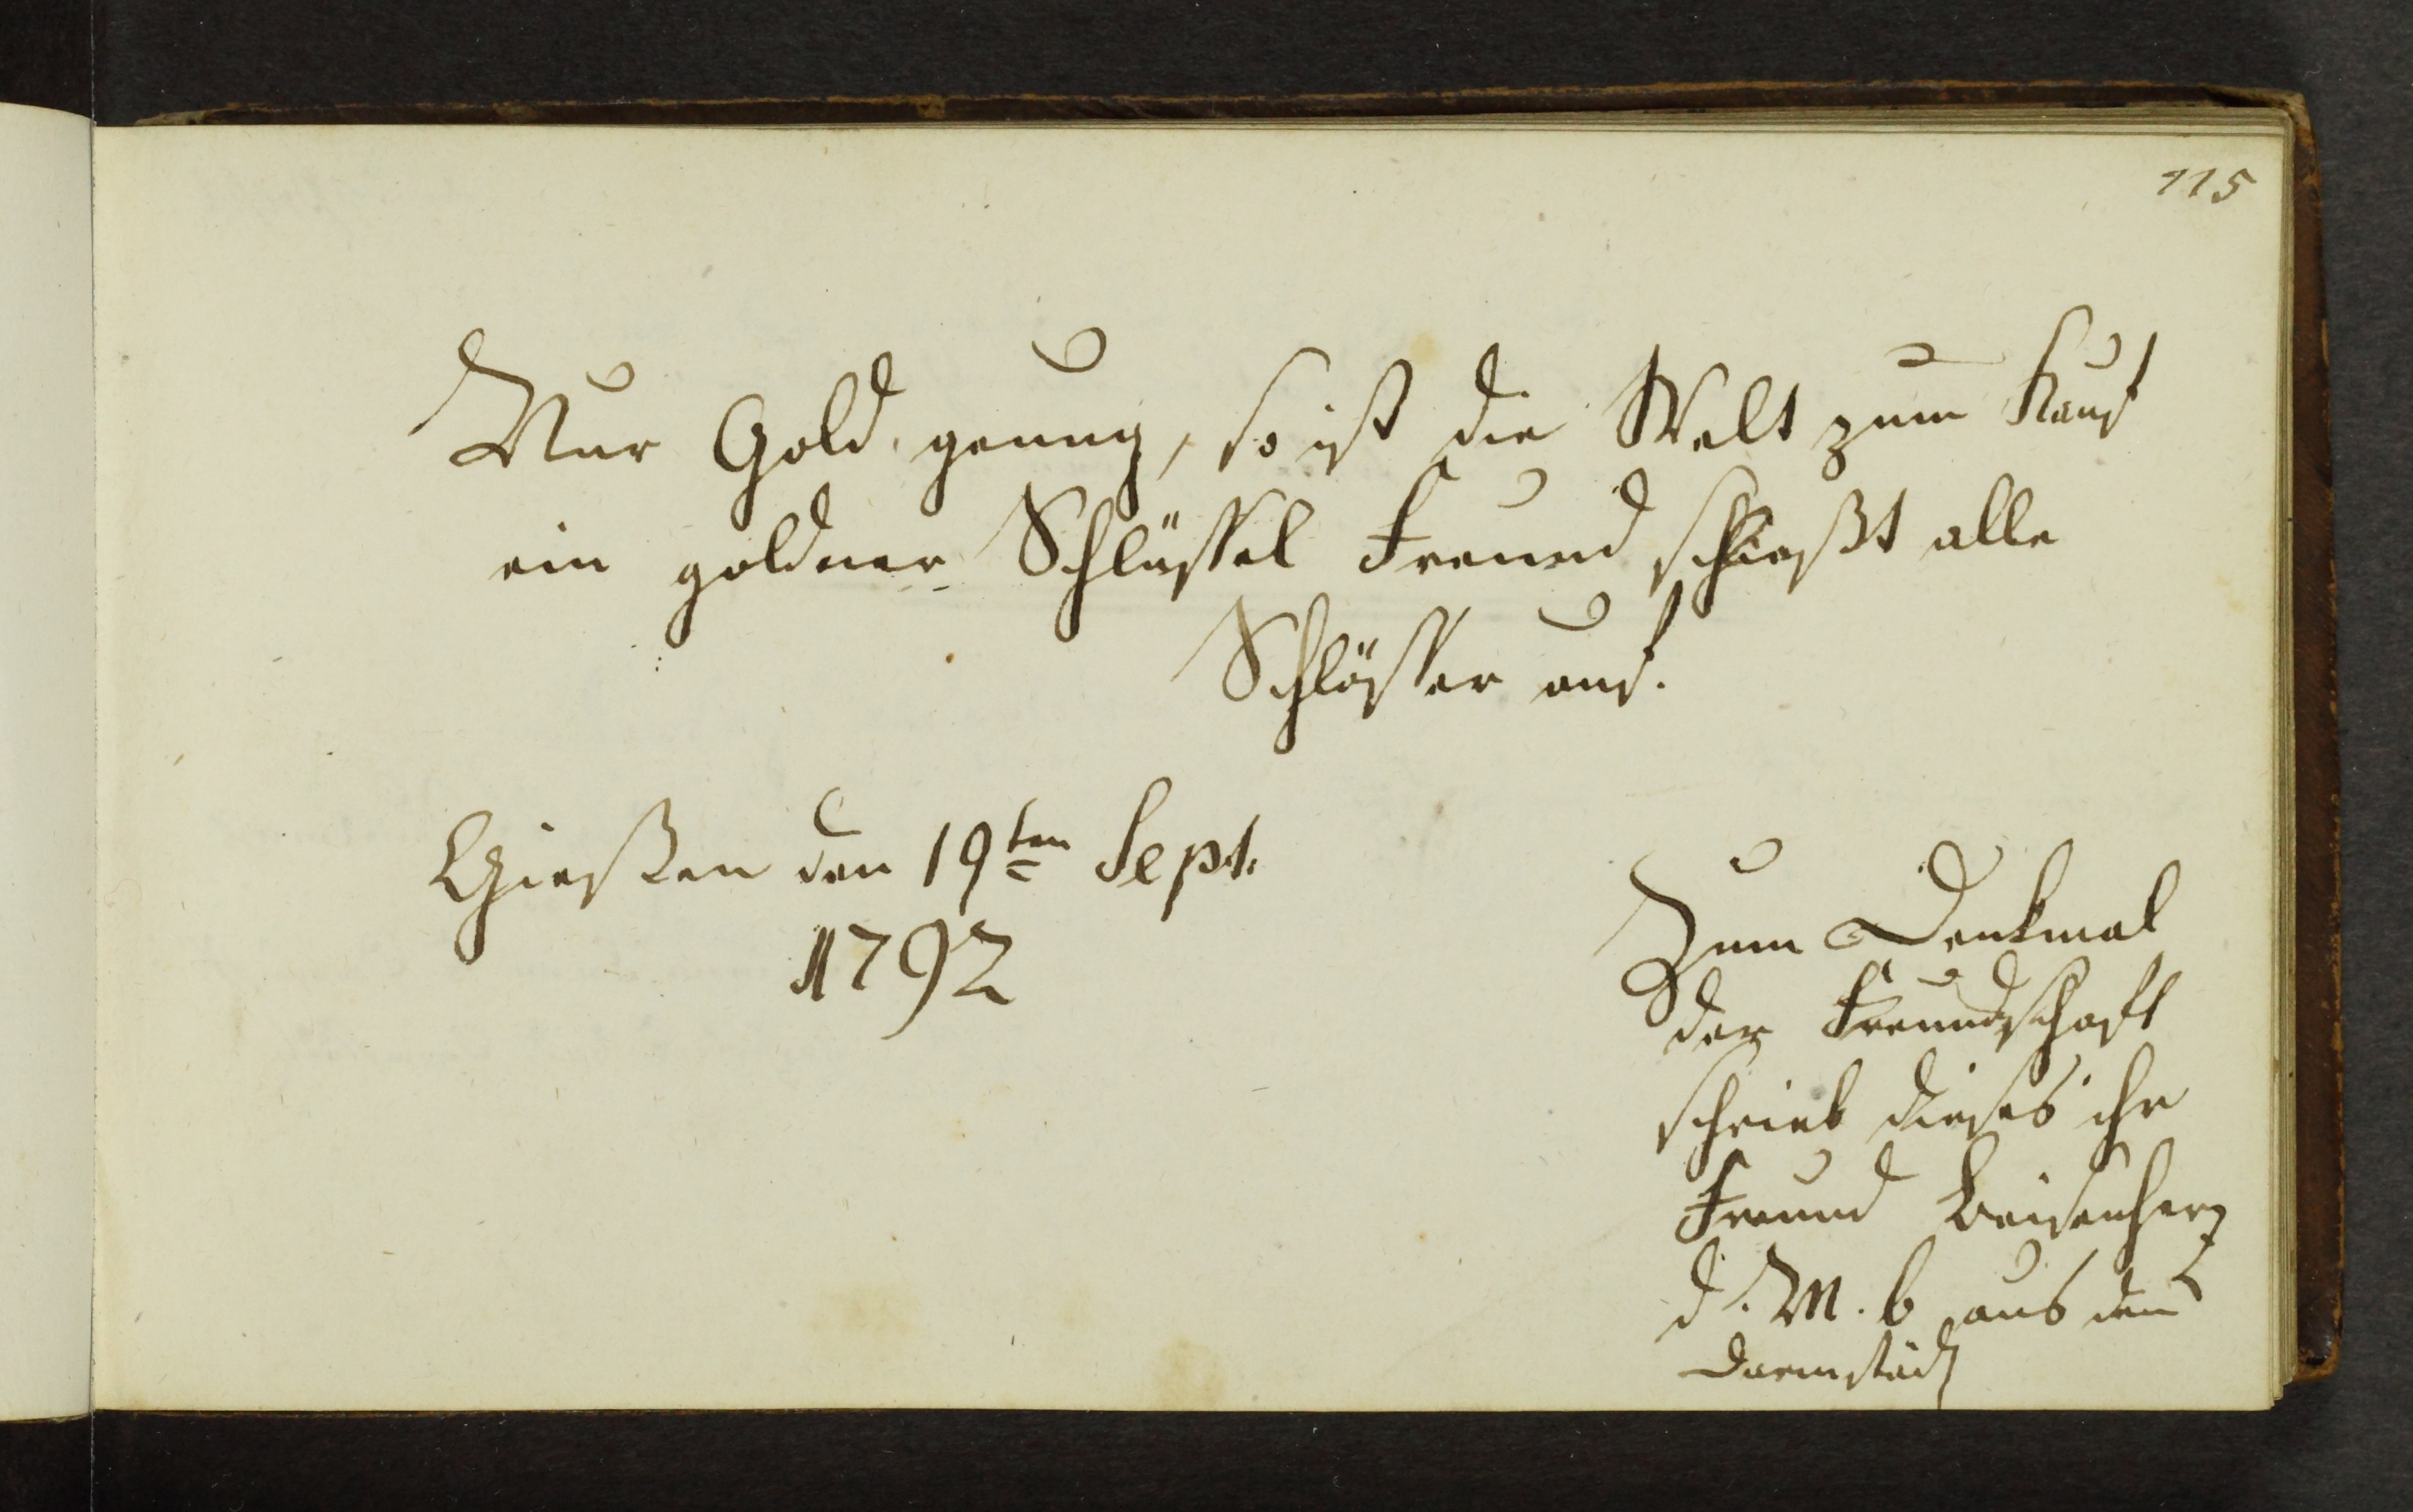 115
Nur Gold genug, so ist die Welt zum Kauf
ein goldner Schlüssel Freund schließt alle
Schlösser auf.
Gießen den 19ten Sept.
1792
Zum Denkmal
der Freundschaft
schrieb dieses ihr
Freund
d. M. b aus dem
Darmstädt